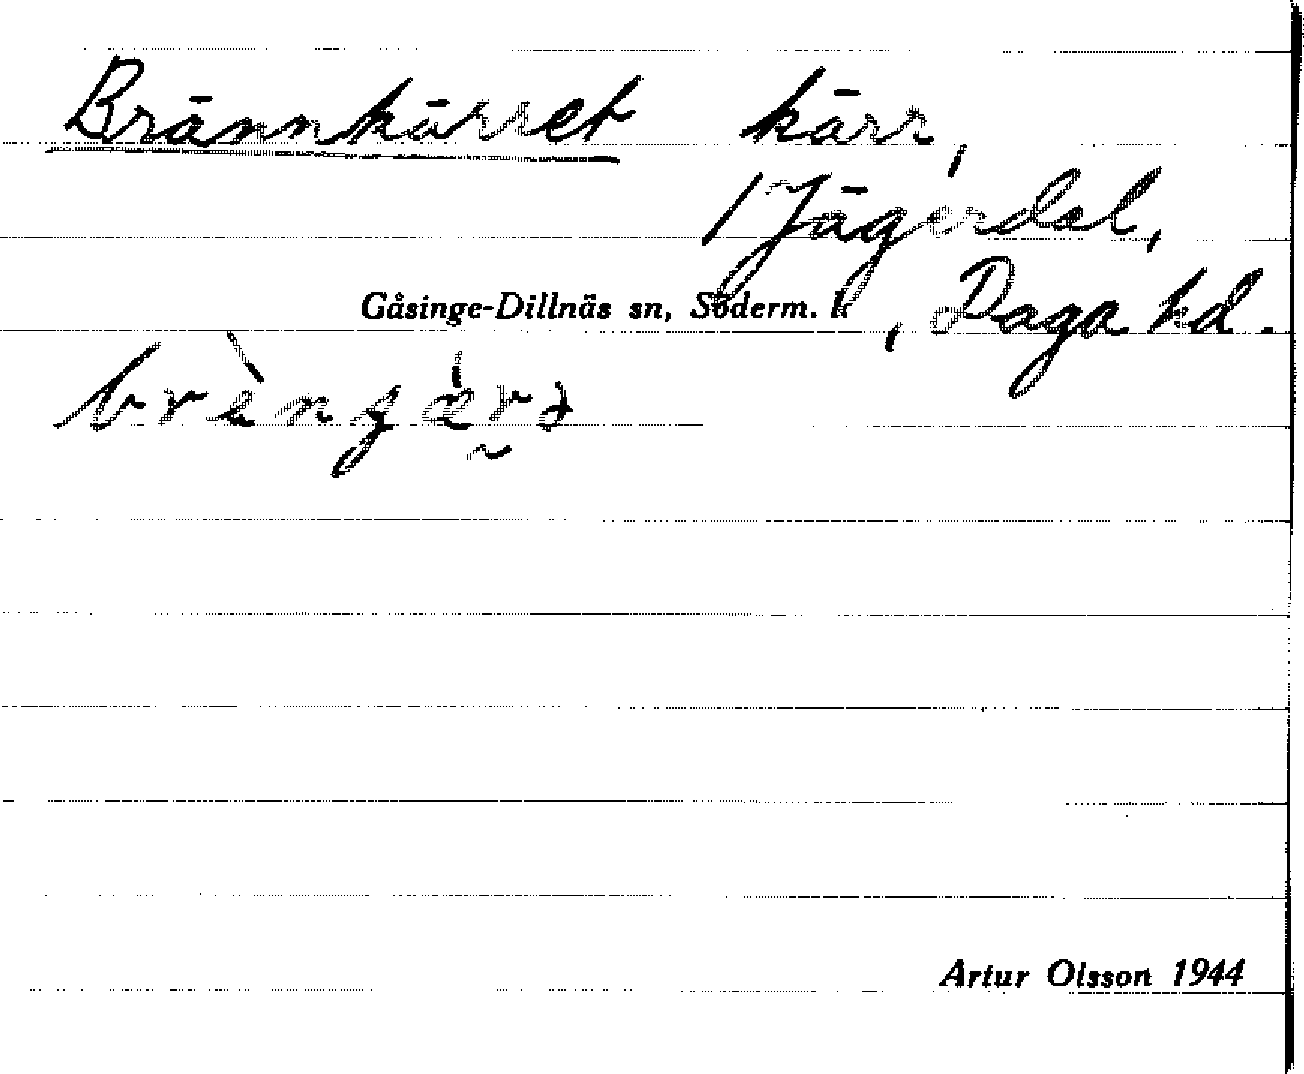 Brännkärret kärr,
1 Jägerdal,
Gåsinge-Dillnäs sn, Söderm. l, Daga hd.
Artur Olsson 1944